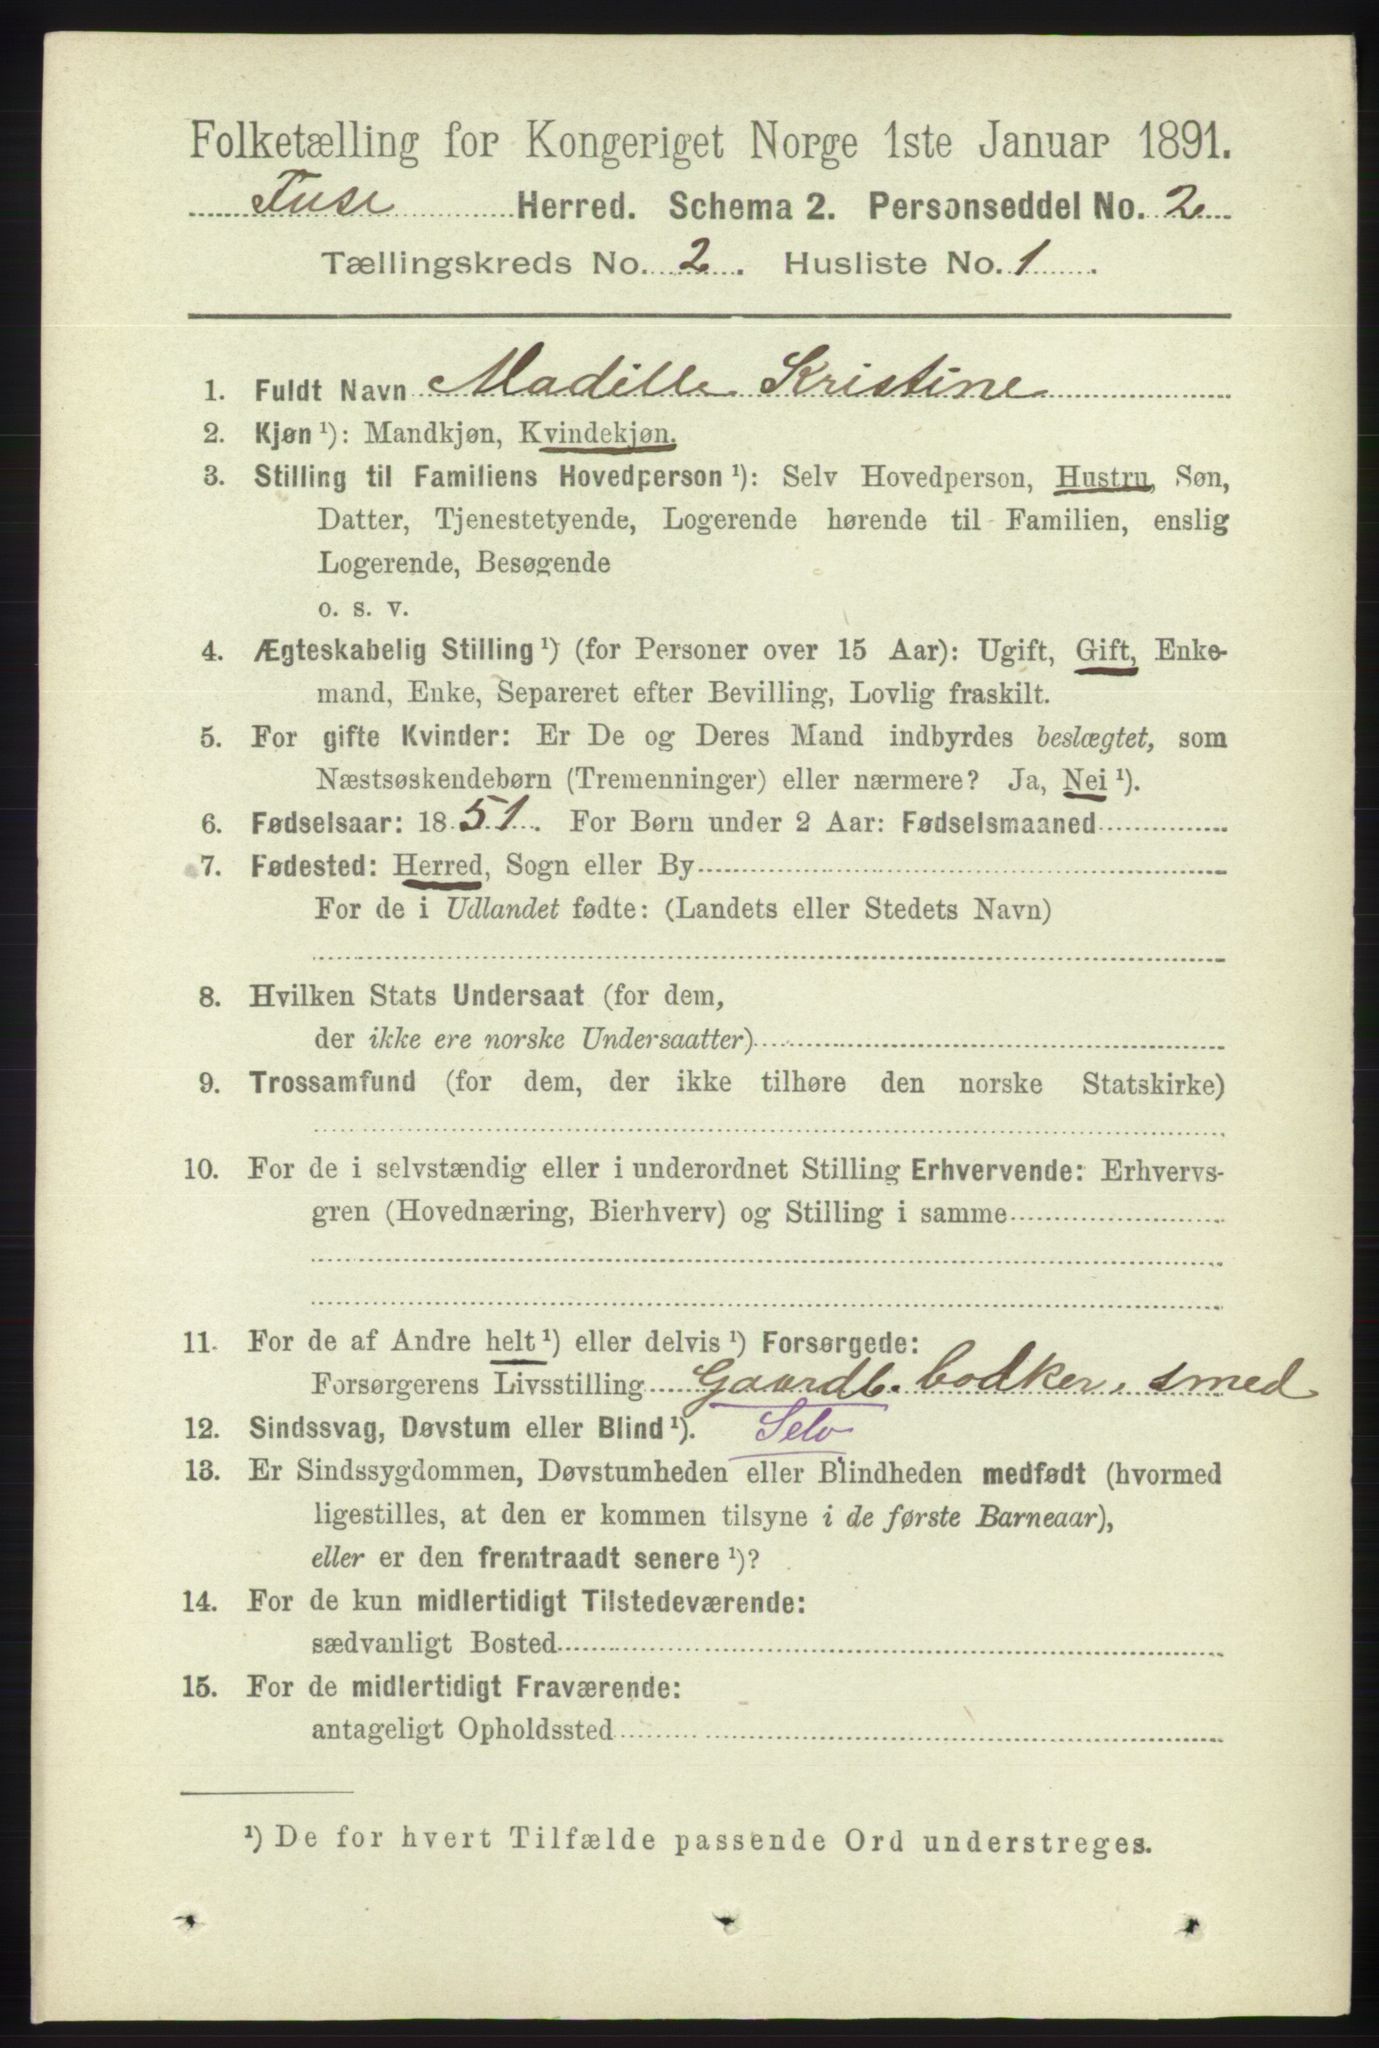 Folketælling for Kongeriget Norge 1ste Januar 1891.
Fuse Herred. Schema 2. Personseddel No. 2
Tællingskreds No. 2. Husliste No. 1.
1. Fuldt Navn Madille Kristine
2. Kjøn ¹): Mandkjøn, Kvindekjøn.
3. Stilling til Familiens Hovedperson ¹): Selv Hovedperson, Hustru, Søn,
Datter, Tjenestetyende, Logerende hørende til Familien, enslig
Logerende, Besøgende
o. s. v.
4. Ægteskabelig Stilling ¹) (for Personer over 15 Aar): Ugift, Gift, Enke-
mand, Enke, Separeret efter Bevilling, Lovlig fraskilt.
5. For gifte Kvinder: Er De og Deres Mand indbyrdes beslægtet, som
Næstsøskendebørn (Tremenninger) eller nærmere? Ja, Nei ¹).
6. Fødselsaar: 1851. For Børn under 2 Aar: Fødselsmaaned
7. Fødested: Herred, Sogn eller By
For de i Udlandet fødte: (Landets eller Stedets Navn)
8. Hvilken Stats Undersaat (for dem,
der ikke ere norske Undersaatter)
9. Trossamfund (for dem, der ikke tilhøre den norske Statskirke)
10. For de i selvstændig eller i underordnet Stilling Erhvervende: Erhvervs-
gren (Hovednæring, Bierhverv) og Stilling i samme
11. For de af Andre helt ¹) eller delvis ¹) Forsørgede:
Forsørgerens Livsstilling Gaardb. bodker, smed
12. Sindssvag, Døvstum eller Blind ¹). Selv
13. Er Sindssygdommen, Døvstumheden eller Blindheden medfødt (hvormed
ligestilles, at den er kommen tilsyne i de første Barneaar),
eller er den fremtraadt senere ¹)?
14. For de kun midlertidigt Tilstedeværende:
sædvanligt Bosted
15. For de midlertidigt Fraværende:
antageligt Opholdssted
¹) De for hvert Tilfælde passende Ord understreges.